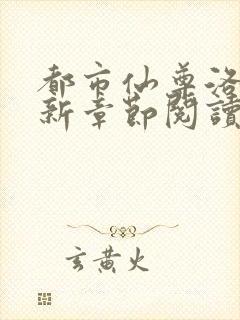 都市仙尊洛
新章節閱讀
玄黃火